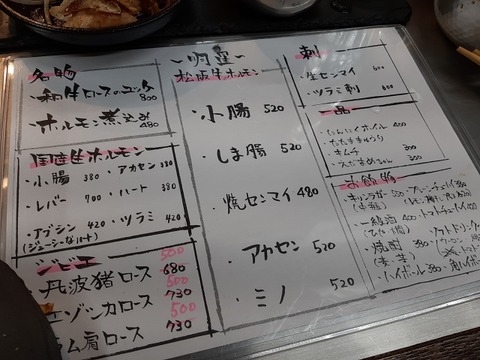 名物
・和牛ロースのユッケ 800
・ホルモン煮込み 480
国産牛ホルモン
・小腸 380 ・アカセン 380
・レバー 700 ・ハート 380
・アブシン 420 ・ツラミ 420
(ジューシーなハート)
ジビエ 500
丹波猪ロース 680
500
エゾシカロース 730
500
ラム肩ロース 730
松阪牛ホルモン
・小腸 520
・しま腸 520
・焼センマイ 480
・アカセン 520
・ミノ 520
刺
・生センマイ 600
・ツラミ刺
一品
・にんにくホイル 400
・たたききゅうり
・キムチ 300
・えだまめちゃん 300
お飲物
・焼酎
(麦・芋)
・ハイボール